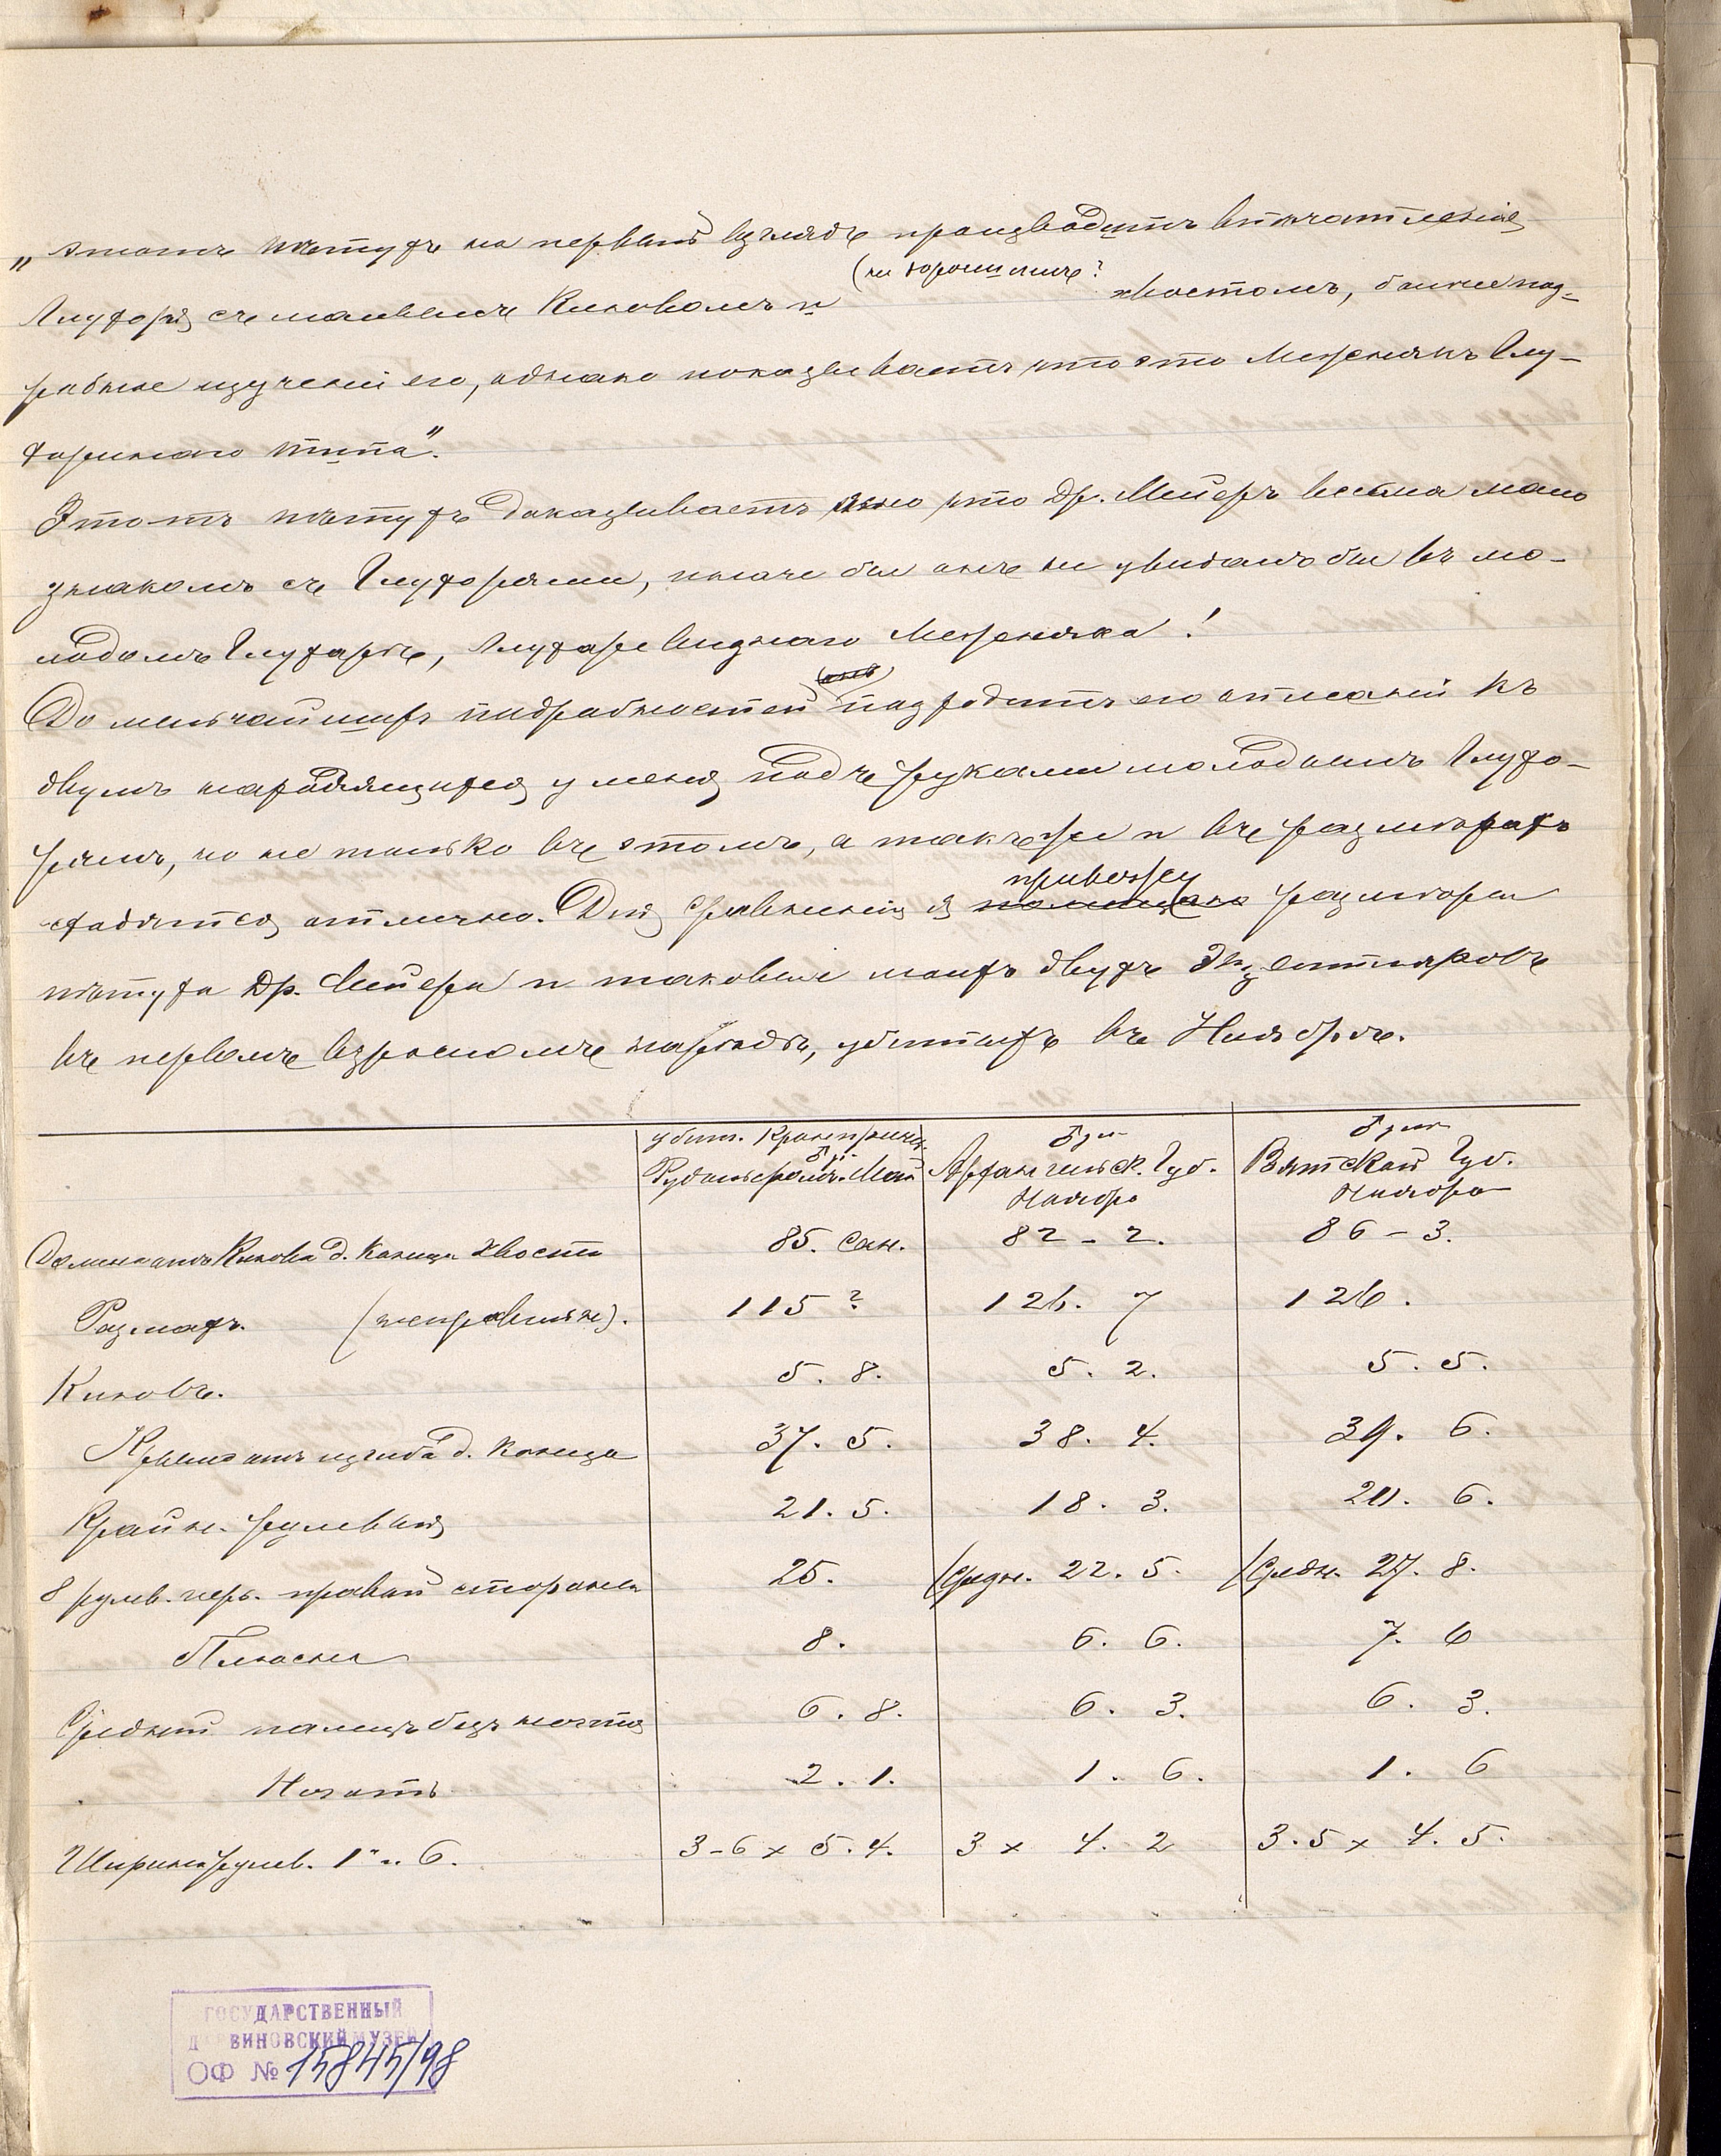 „этотъ пѣтухъ на первый взглядъ производитъ впечатленіе
Глухаря съ малымъ Клювомъ и (не хорошимъ? хвостомъ, ближе под-
робное изученіе его, однако показываетъ что это Межнякъ Глу-
харинаго типа".
Этотъ пѣтухъ доказываетъ ясно что Др. Мейеръ весьма мало
знакомъ съ Глухарями, иначе бы онъ не увидалъ бы въ мо-
лодомъ Глухарѣ, Глухаре видного Межняка!
До мельчайшихъ подробностей подходитъ его описаніе къ
двумъ находящихся у меня подъ руками молодымъ Глуха-
рямъ, но не только въ этомъ, а также и въ размѣрахъ
сходятся отлично. Для сравненія я привожу размѣры
пѣтуха Др. Мейера и таковые моихъ двухъ Экземпляровъ
въ первомъ взросломъ нарядѣ, убитыхъ въ Ноябрѣ.
убит. Кронпринц. Рудольфомъ. Май
Архангельск. Губ. Ноябрь
Вятской Губ. Ноябрь
Длина отъ Клюва д. конца хвоста 85. сан. 82 - 2. 86 - 3.
Размахъ. (неправильн.). 115? 126. 7 126.
Клювъ. 5. 8. 5. 2. 5. 5.
Крыло отъ изгиба д. конца 37. 5. 38. 4. 39. 6.
Крайн. рулевыя 21. 5. 18. 3. 20. 6.
8 рулев. пер. правой стороны 25. (Средн. 22. 5. (Средн. 27. 8.
Плюсна 8. 6. 6. 7. 6
Средній палецъ безъ ногтя 6. 8. 6. 3. 6. 3.
Ноготь 2. 1. 1. 6. 1. 6
Ширина рулев. 1 и 6. 3-6 x 5. 4. 3 x 4. 2 3.5 x 4. 5.
ГОСУДАРСТВЕННЫЙ
ДАРВИНОВСКИЙ МУЗЕЙ
ОФ № 15845/98